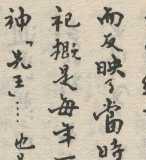 而反映了當時
祀概是每年一
神「先王」……也是